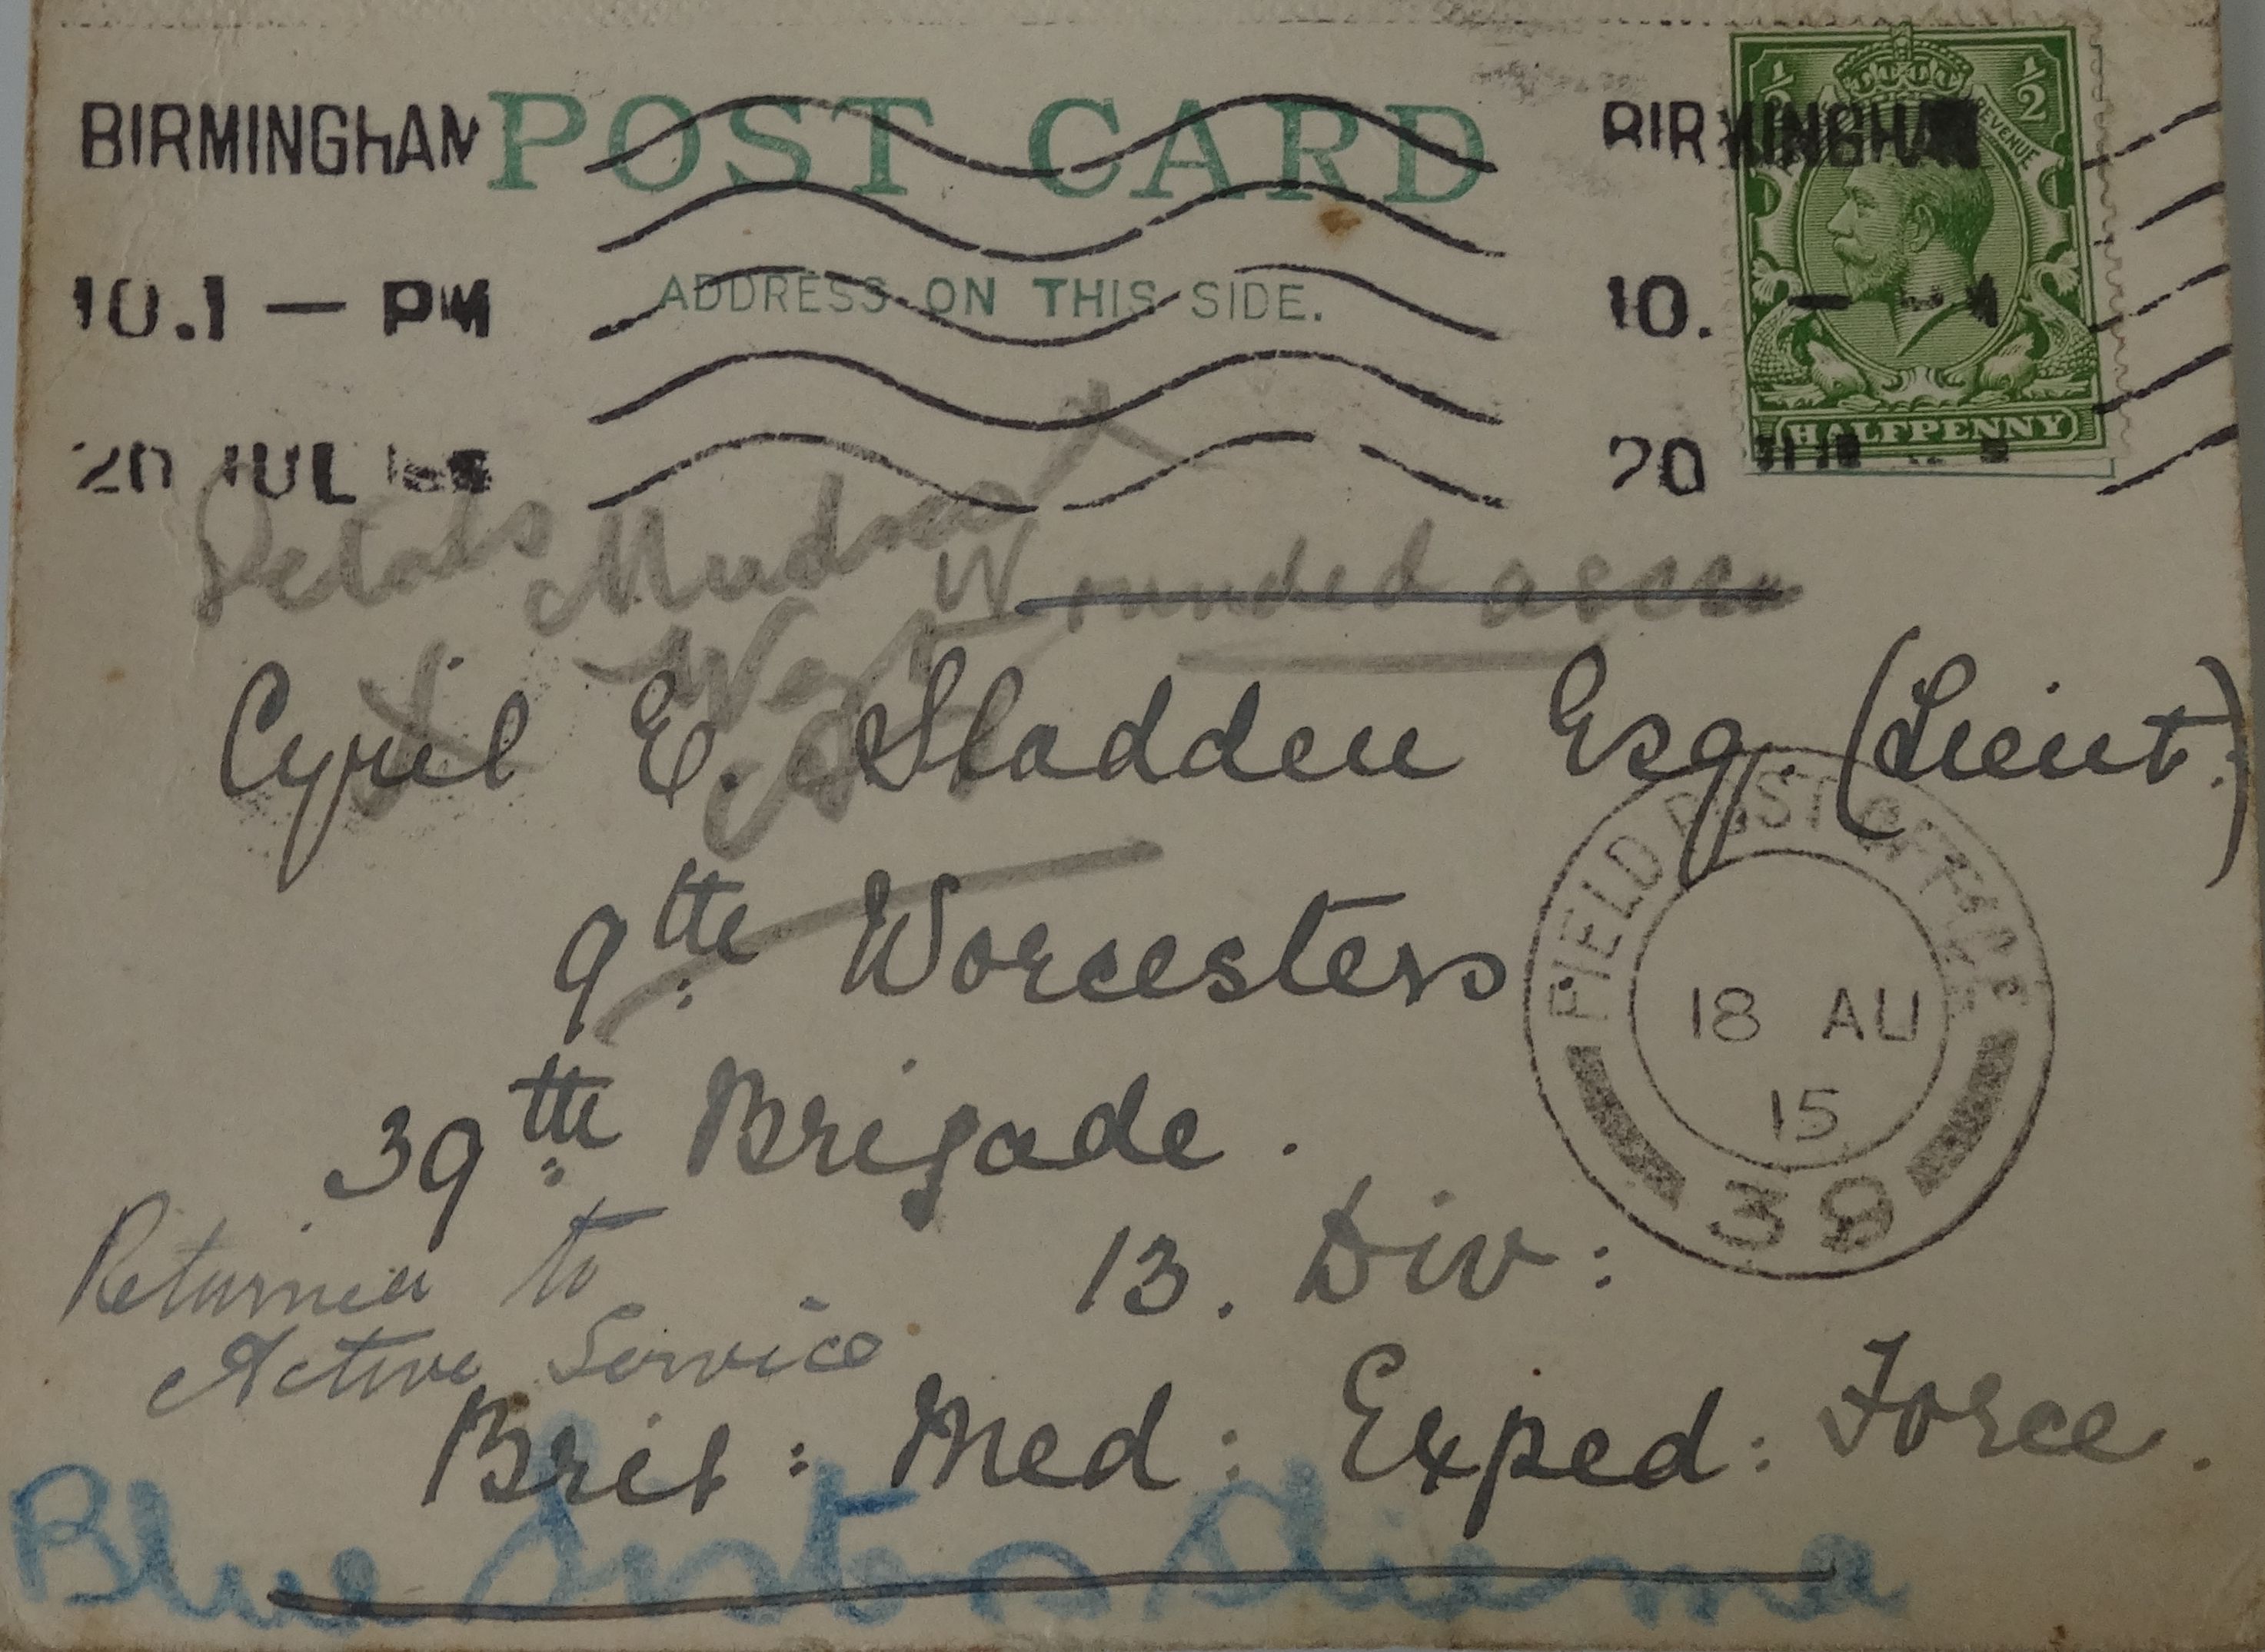 BIRMINGHAM POST CARD BIRMINGHAM
½ ½
REVENUE
10.1 — PM ADDRESS ON THIS SIDE. 10.
20 JUL 20
HALFPENNY
Details Mudros
Wounded
Cyril E. Sladden Esq. (Lieut.)
9th Worcesters
FIELD POST OFFICE
18 AU
15
39
39th Brigade.
13. Div:
Returned to
Active Service
Brit: Med: Exped: Force.
Blue Sisters Sliema